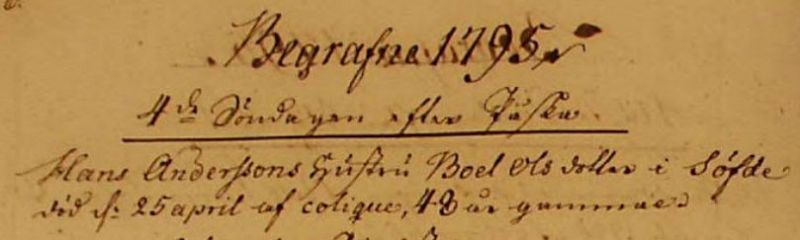 Begrafne 1795
4de Söndagen efter Påska
Hans Anderssons Hustru Boel Ols dotter i Söfde
död d: 25 april af colique, 48 år gammal